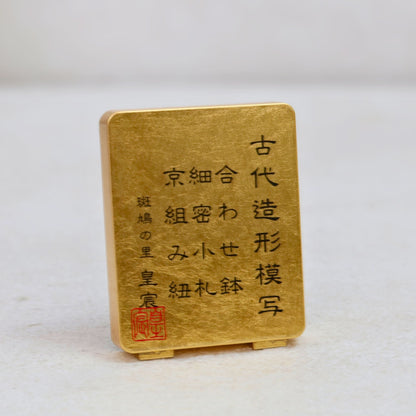 古代造形模写
合わせ鉢
細密小札
京組み紐
斑鳩の里 皇宸